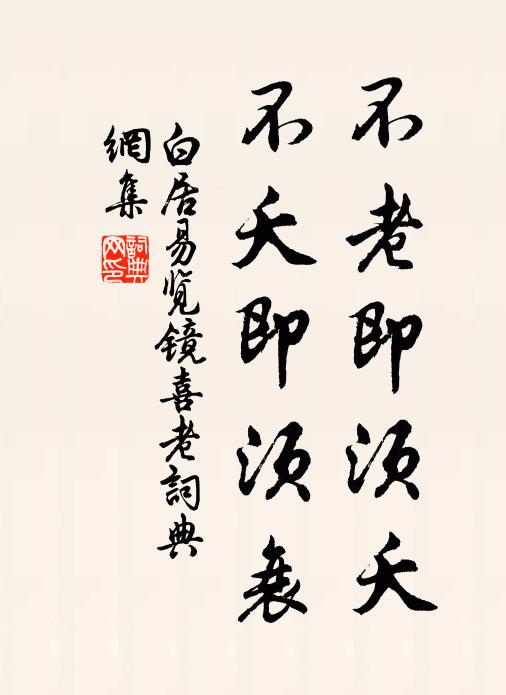 不老即须夭
不夭即须衰
白居易览镜喜老詞典
網集
詞典网印